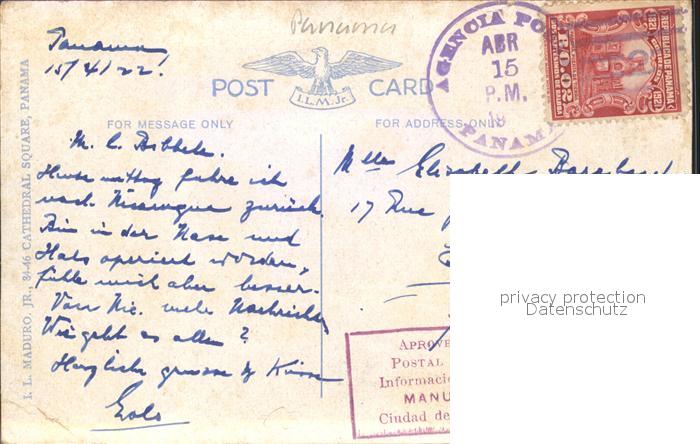 Panama
Panama
15/4/22!
POST CARD
I.L.M.Jr.
FOR MESSAGE ONLY
FOR ADDRESS ONLY
AGENCIA PO
ABR
15
P.M.
19
PANAMA
1821
REPUBLICA DE PANAMA
1921
B 0.02
I. L. MADURO, JR., 34-46 CATHEDRAL SQUARE, PANAMA
M. l.
Heute mittag fahre ich
nach Nicaragua zurück.
Bin in der Nase und
Hals operiert worden,
fühle mich aber besser.
Von Nic. mehr Nachrichten
Wie geht es allen?
Herzliche grüsse & Küsse
Lolo
Mlle Elisabeth
17 Rue
APROVE
POSTAL
Informació
MANU
Ciudad de
privacy protection
Datenschutz